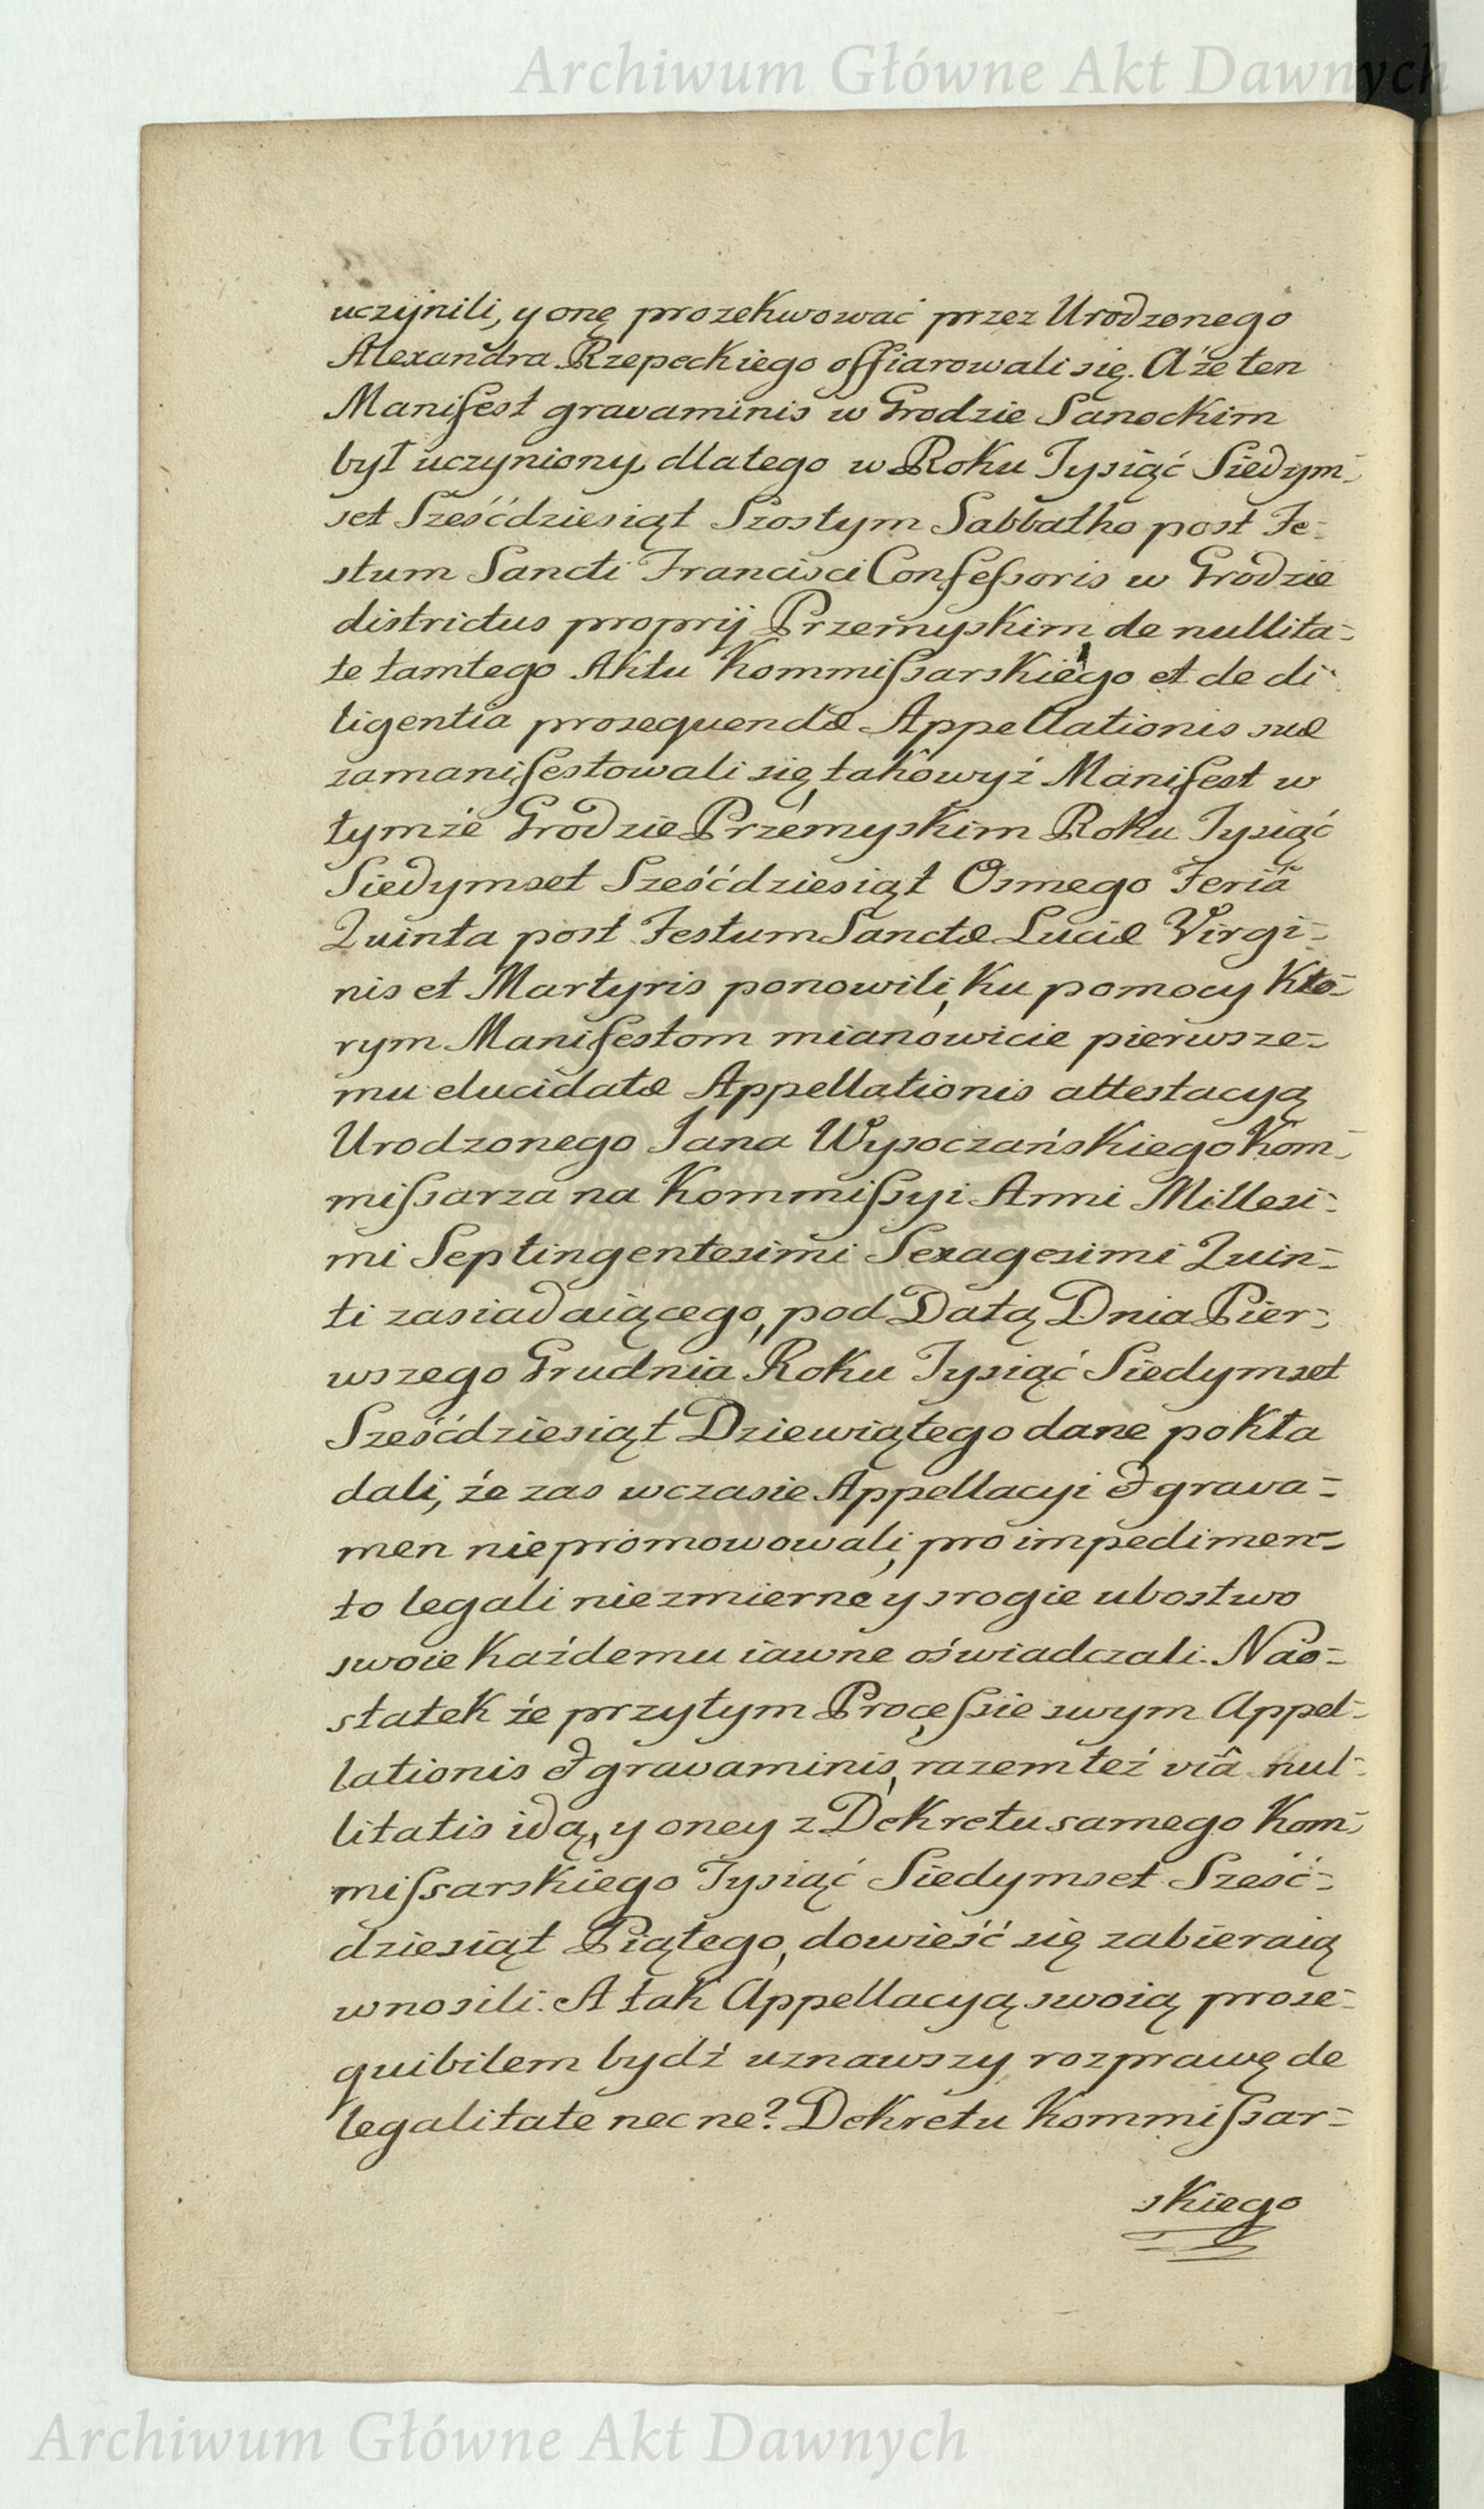 Archiwum Główne Akt Dawnych
uczynili, y onę prozekwować przez Urodzonego
Alexandra Rzepeckiego offiarowali się. A że ten
Manifest gravaminis w Grodzie Sanockim
był uczyniony, dlatego w Roku Tysiąć Siedym-
set Sześćdziesiąt Szostym Sabbatho post Fe-
stum Sancti Francisci Confeſsoris w Grodzie
districtus proprij Przemyskim de nullita-
te tamtego Aktu Kommiſsarskiego et de di-
ligentia prosequendæ Appellationis suæ
zamanifestowali się, takowyż Manifest w
tymże Grodzie Przemyskim Roku Tysiąć
Siedymset Sześćdziesiąt Osmego Feriâ
Quinta post Festum Sanctæ Luciæ Virgi-
nis et Martyris ponowili, ku pomocy kto-
rym Manifestom mianowicie pierwsze-
mu elucidatæ Appellationis attestacyą
Urodzonego Jana Wysoczańskiego Kom-
miſsarza na Kommiſsyi Anni Millesi-
mi Septingentesimi Sexagesimi Quin-
ti zasiadaiącego, pod Datą Dnia Pier-
wszego Grudnia Roku Tysiąć Siedymset
Sześćdziesiąt Dziewiątego dane pokła
dali, że zas w czasie Appellacyi & grava-
men niepromowowali, pro impedimen-
to legali niezmierne y srogie ubostwo
swoie każdemu iawne oświadczali. Nao-
statek że przytym Proceſsie swym Appel-
lationis & gravaminis, razem też viâ nul-
litatis idą, y oney z Dekretu samego Kom-
miſsarskiego Tysiąć Siedymset Sześć-
dziesiąt Piątego, dowieść się zabieraią
wnosili. A tak Appellacyą swoią prose-
quibilem bydź uznawszy, rozprawę de
legalitate nec ne? Dekretu Kommiſsar-
skiego
Archiwum Główne Akt Dawnych